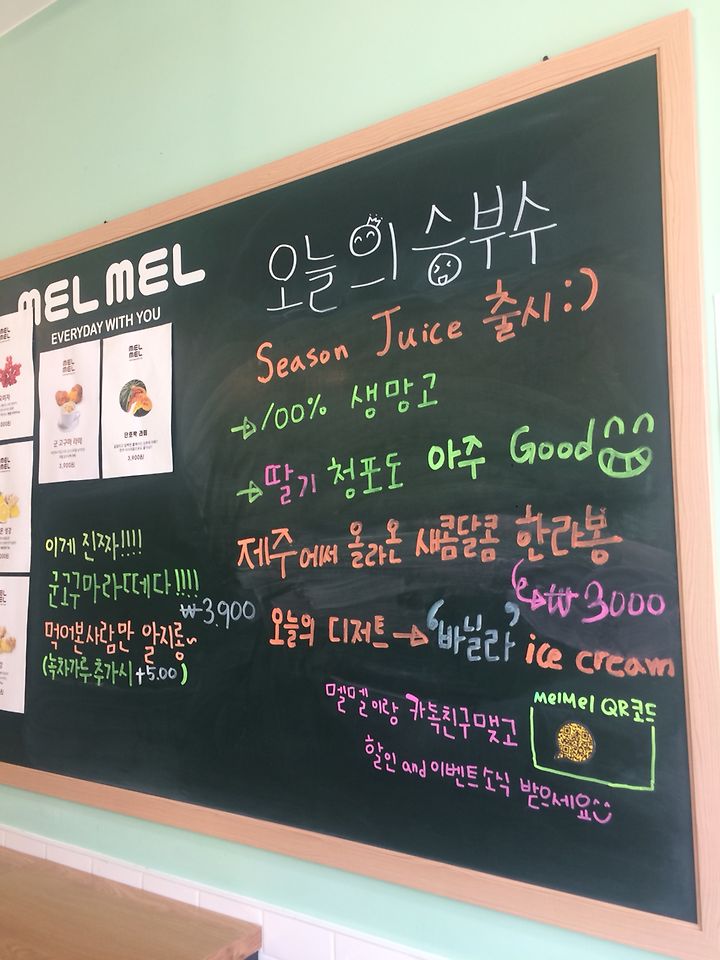 MEL MEL
EVERYDAY WITH YOU
MEL
MEL
군 고구마 라떼
3,900원
MEL
MEL
단호박 라떼
3,900원
이게 진짜!!!!
군고구마라떼다!!!!
₩3,900
먹어본사람만 알지롱~
(녹차가루 추가시 +500)
오늘의 승부수
Season Juice 출시:)
→100% 생망고
→딸기 청포도 아주 Good
제주에서 올라온 새콤달콤 한라봉
→₩3000
오늘의 디저트→'바닐라' ice cream
멜멜이랑 카톡친구맺고
할인 and 이벤트소식 받으세요
MelMel QR코드